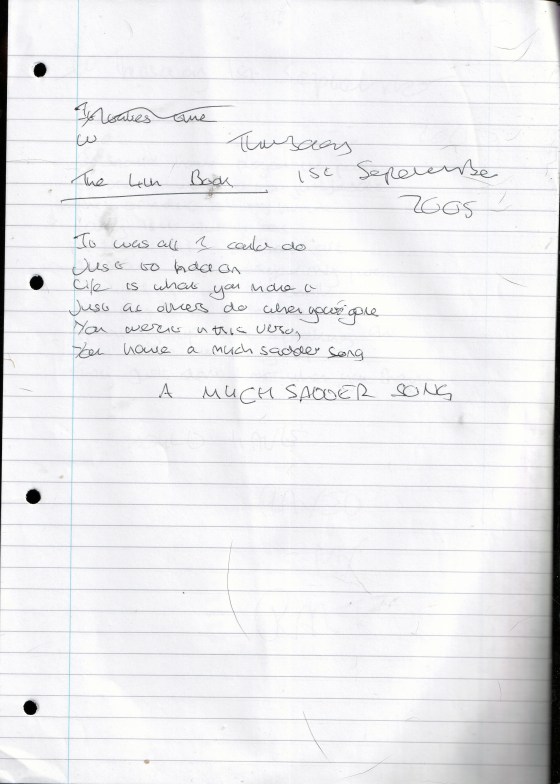 Thursday
The 4th Book
1st September
2005
It was all I could do
Just to hold on
Life is what you make it
Just as others do when you're gone
You weren't in this verse,
You have a much sadder song
A MUCH SADDER SONG